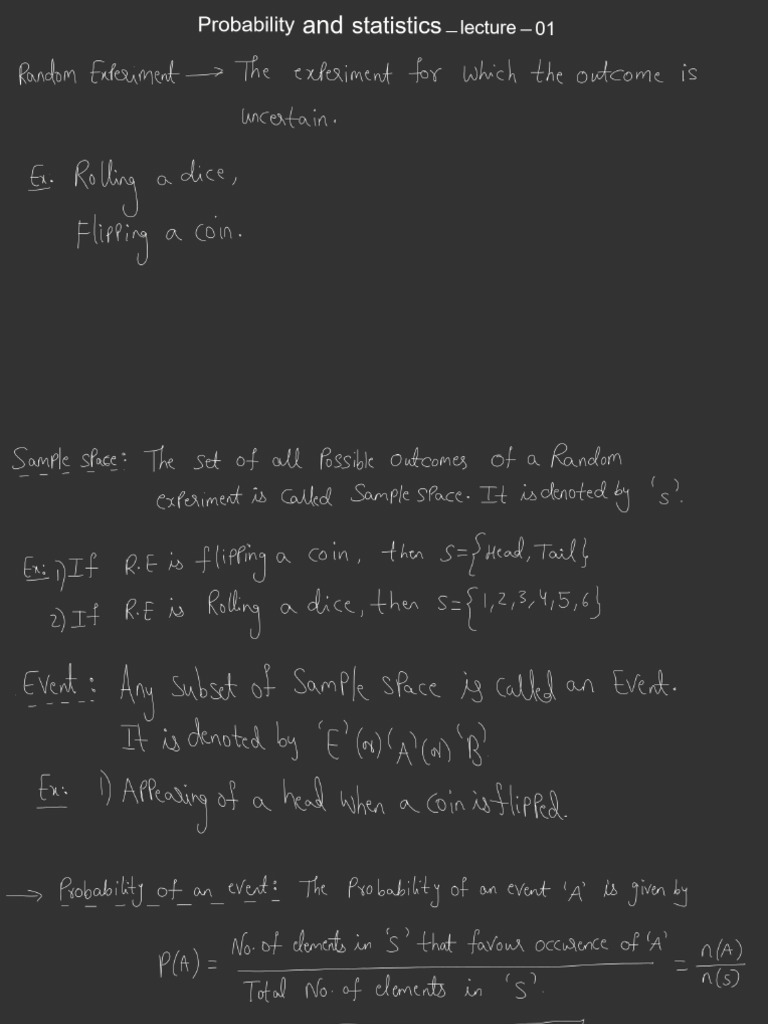 Probability and statistics - lecture - 01
Random Experiment → The experiment for which the outcome is
uncertain.
Ex. Rolling a dice,
Flipping a coin.
Sample space: The set of all possible outcomes of a Random
experiment is called Sample space. It is denoted by 's'.
Ex: 1) If R.E is flipping a coin, then S={Head, Tail}
2) If R.E is Rolling a dice, then S={1,2,3,4,5,6}
Event: Any subset of Sample space is called an Event.
It is denoted by 'E' (or) 'A' (or) 'B'
Ex: 1) Appearing of a head when a coin is flipped.
→ Probability of an event: The Probability of an event 'A' is given by
P(A) = No. of elements in 'S' that favour occurence of 'A' / Total No. of elements in 'S'. = n(A)/n(S)